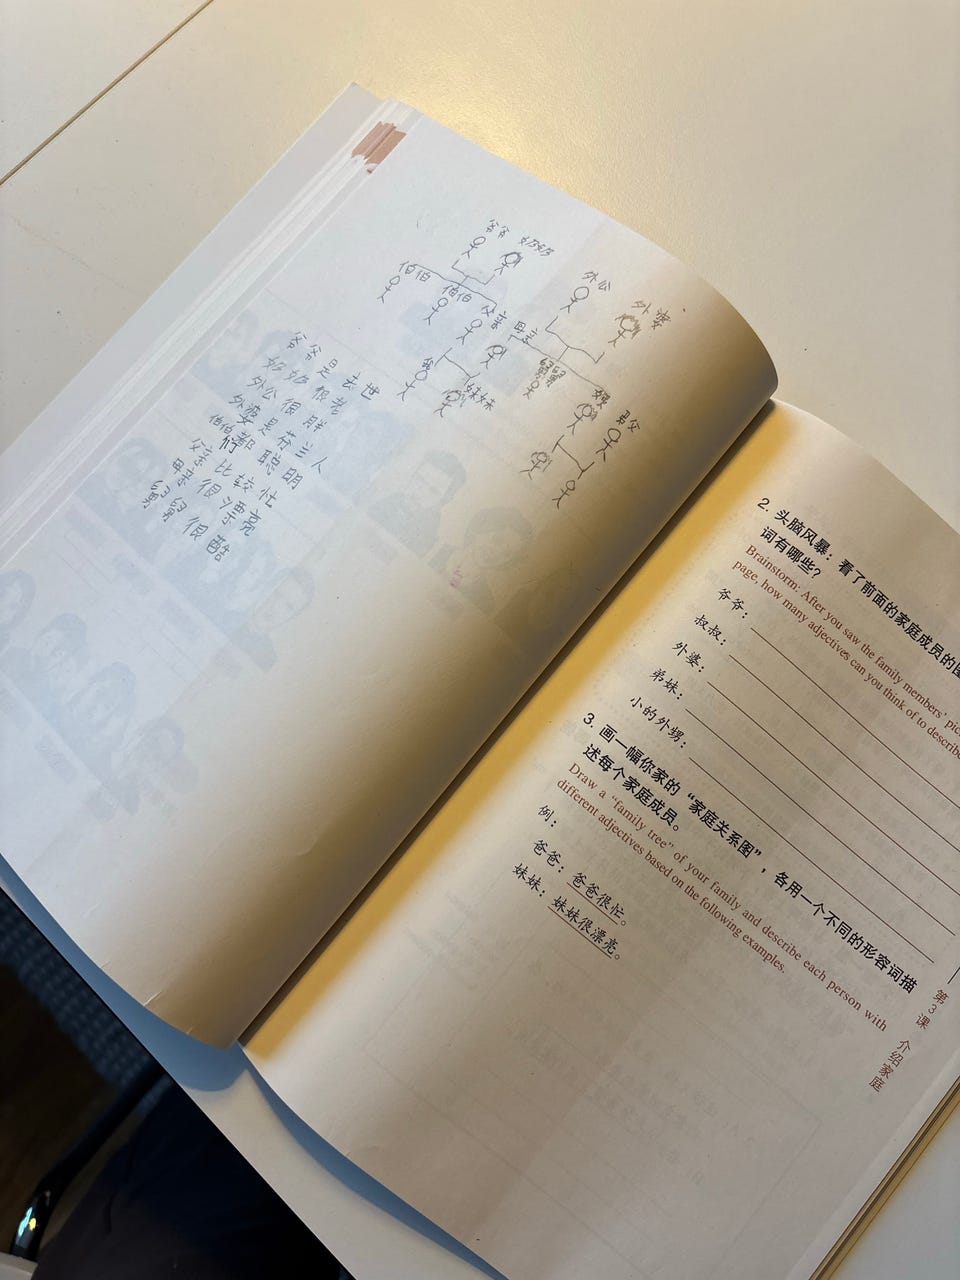 爷爷 奶奶
伯伯 伯伯 父亲
外公 外婆
母亲 舅舅
我 妹妹
爷爷是去世
奶奶很老
外公很胖
外婆是芬兰人
伯伯们都聪明
父亲比较忙
母亲很漂亮
舅舅很酷
2. 头脑风暴：看了前面的家庭成员的图
词有哪些？
Brainstorm: After you saw the family members' pic
page, how many adjectives can you think of to describe
爷爷：
叔叔：
外婆：
弟妹：
小的外甥：
3. 画一幅你家的“家庭关系图”，各用一个不同的形容词描
述每个家庭成员。
Draw a "family tree" of your family and describe each person with
different adjectives based on the following examples.
例：
爸爸：爸爸很忙。
妹妹：妹妹很漂亮。
第3课 介绍家庭